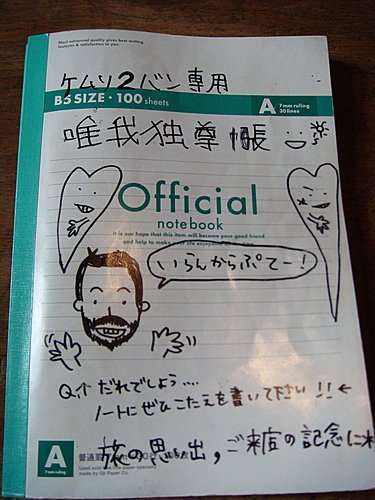 Most advanced quality gives best writing
features & satisfaction to you.
ケムリ2バン専用
B5 SIZE・100 sheets
A 7mm ruling
30 lines
唯我独尊帳
Official
notebook
It is our hope that this item will become your good friend
and help to make your life enjoyable
いらんからぷてー!
Q.介だれでしよう....
ノートにぜひこたえを書いて下さい!!←
旅の思い出,ご来店の記念に
A
7mm ruling
普通
Used
made by Oji Paper Co.